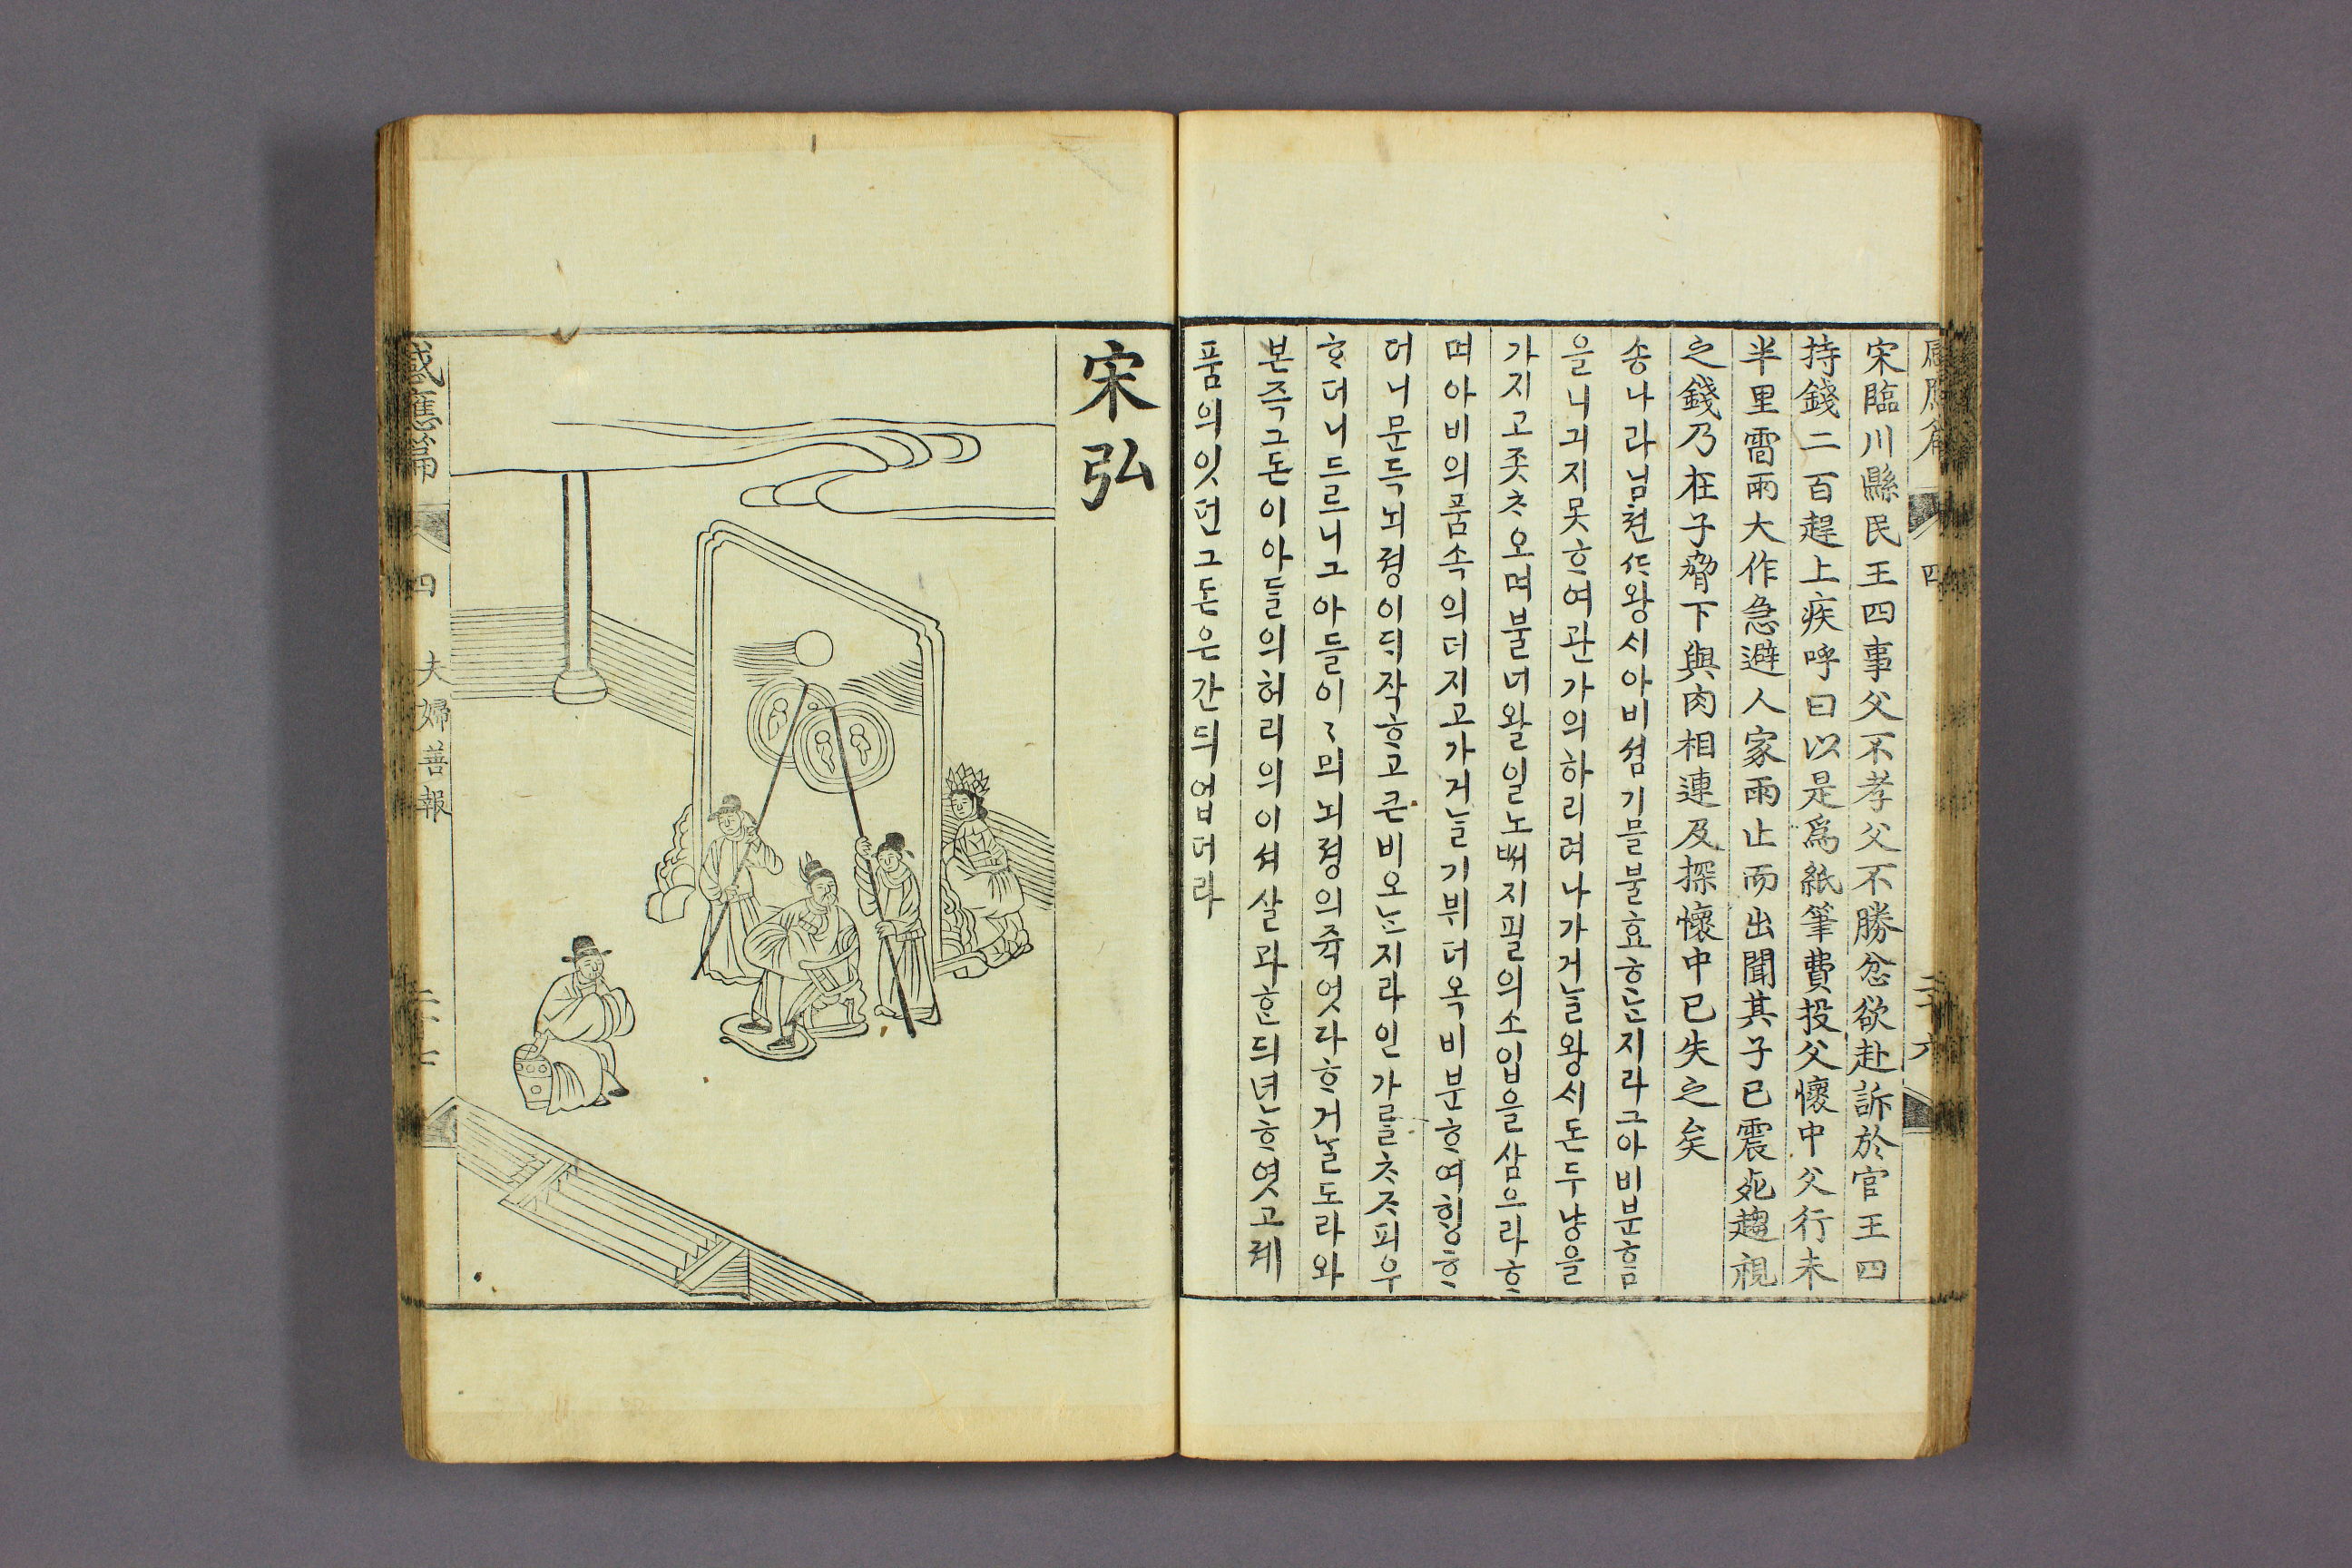 四
宋臨川縣民王四事父不孝父不勝忿欲赴訴於官王四
持錢二百趕上疾呼曰以是爲紙筆費投父懷中父行未
半里雷雨大作急避人家雨止而出聞其子已震死趨視
之錢乃在子脅下與肉相連及探懷中已失之矣
송나라님쳔ᄯᆞ왕시아비셤기믈불효ᄒᆞᄂᆞᆫ지라그아비분ᄒᆞᆷ
을니긔지못ᄒᆞ여관가의하리려나가거ᄂᆞᆯ왕시돈두냥을
가지고좃ᄎᆞ오며불너왈일노ᄡᅥ지필의소입을삼으라ᄒᆞ
며아비의품속의더지고가거ᄂᆞᆯ기뷔더옥비분ᄒᆞ여ᄒᆡᆼᄒᆞ
더니문득뇌졍이ᄃᆡ작ᄒᆞ고큰비오ᄂᆞᆫ지라인가ᄅᆞᆯᄎᆞᄌᆞ피우
ᄒᆞ더니드르니그아들이〻믜뇌졍의쥭엇다ᄒᆞ거ᄂᆞᆯ도라와
본즉그돈이아ᄃᆞᆯ의허리의이셔살과ᄒᆞᆫᄃᆡ년ᄒᆞ엿고졔
품의잇던그돈은간ᄃᆡ업더라
宋弘
感應篇 四 夫婦善報